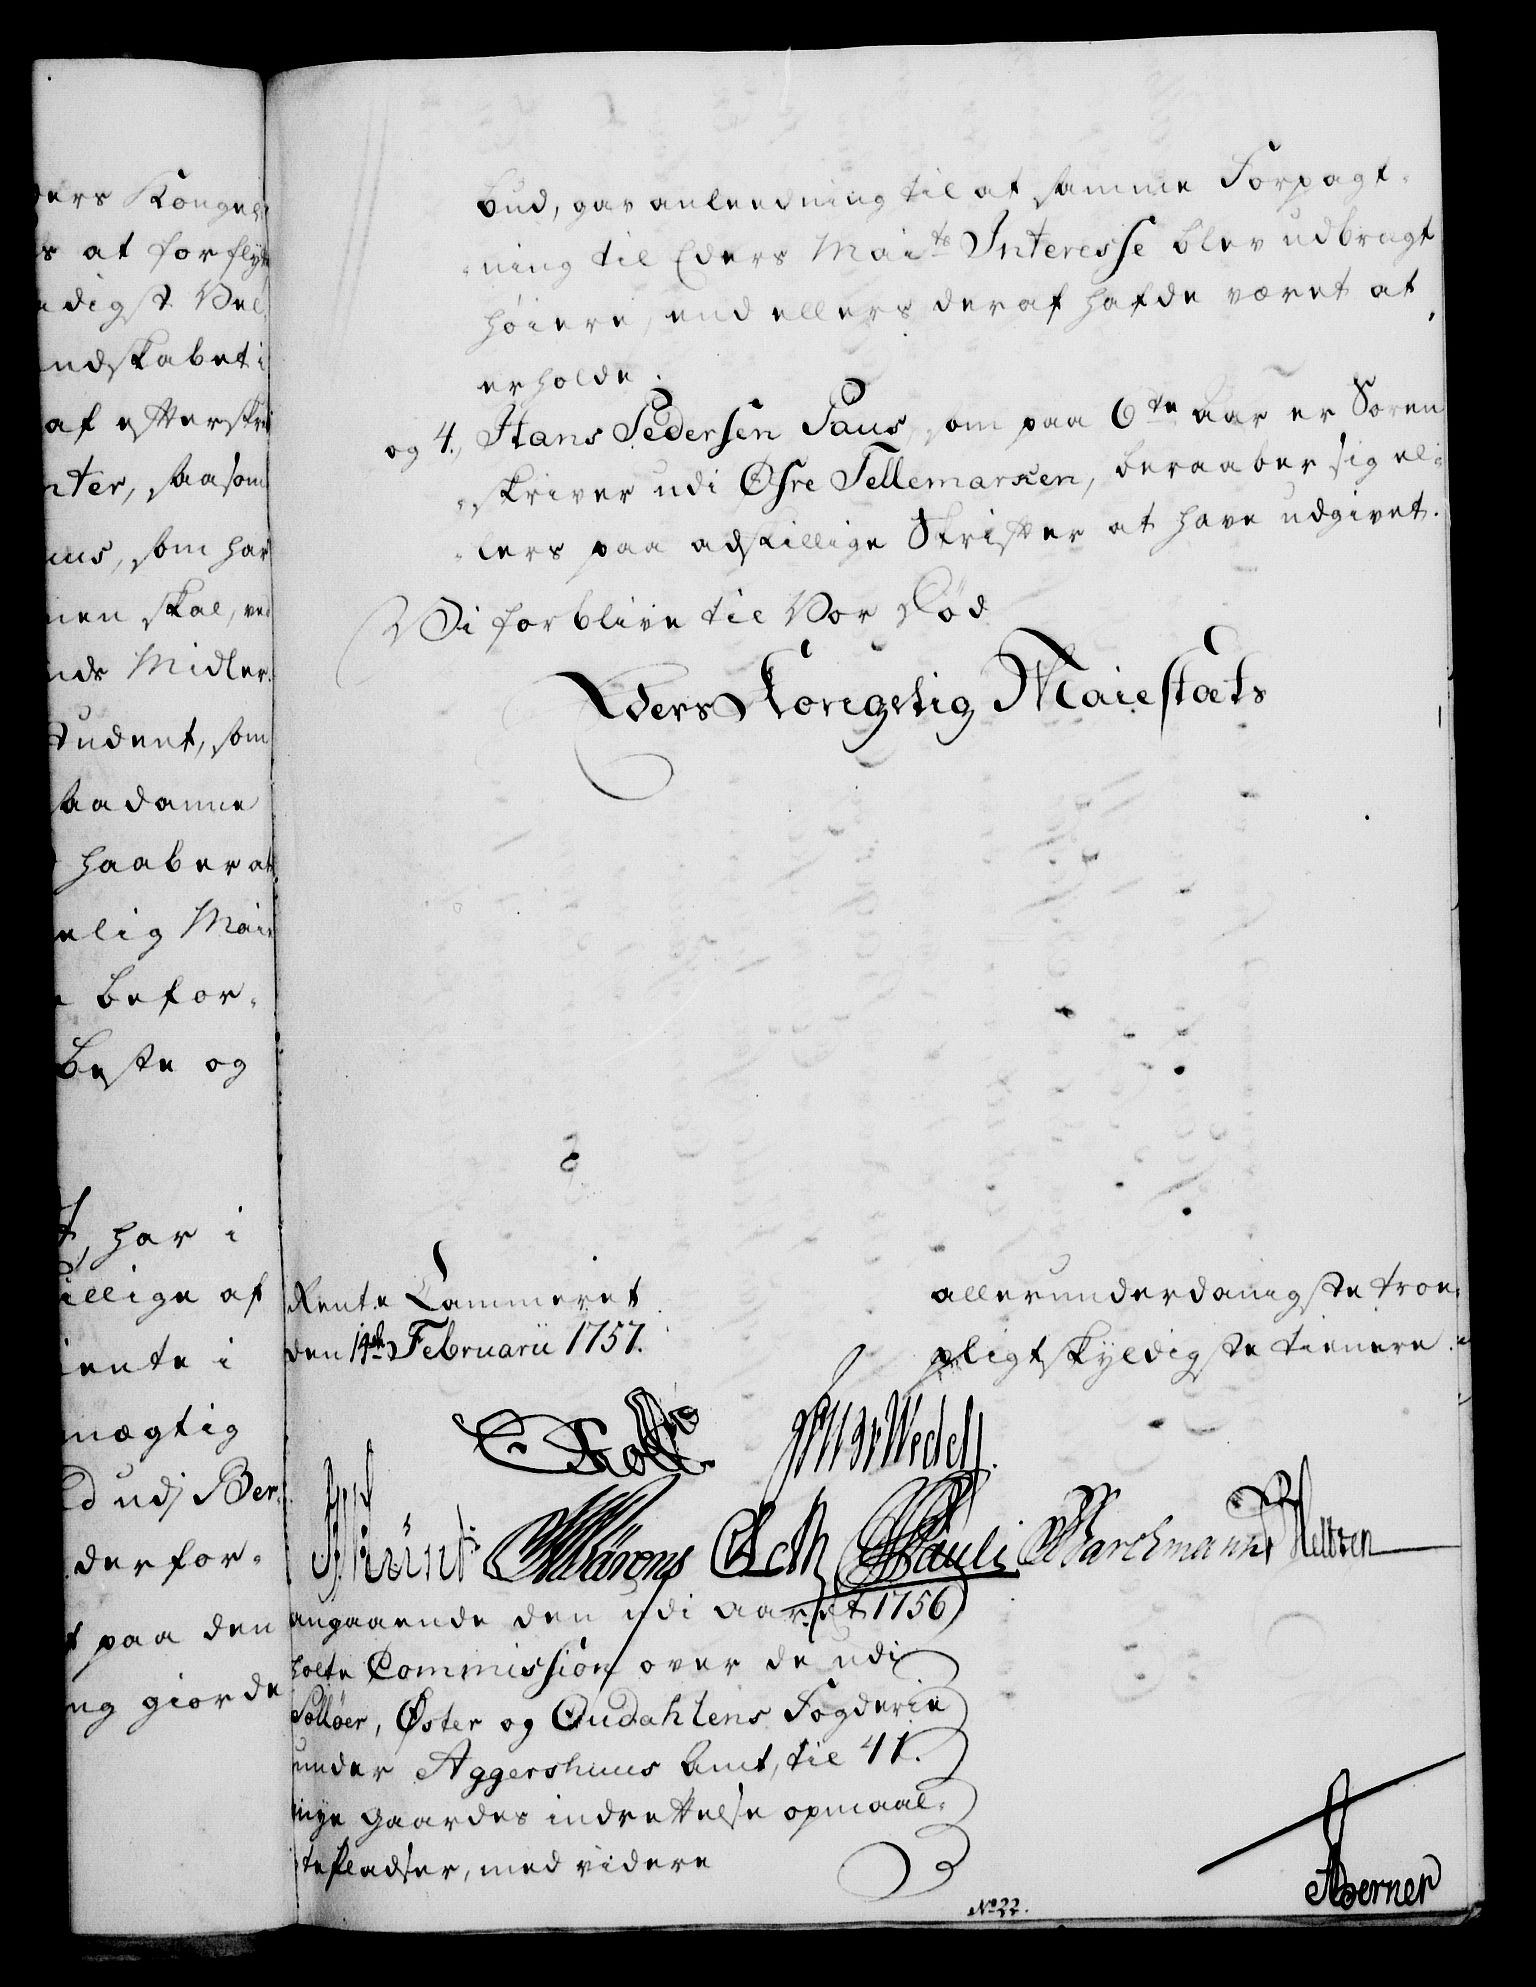 ders Kongel:
ds at forflyt
adigst Vel
endskabet i
af efterskre
nter, saasom
uus, som har
men skal, ved
nds Midler.
Student, som
saadanne
haaber at
elig Mai
befor-
beste og
t, har i
illige af
iente i
mægtig
ud udj Ber
derfor-
t paa den
ng giorde
bud, gav anleedning til at samme Forpagt-
-ning til Eders Maits Interesse blev udbragt
høiere, end ellers deraf hafde været at
erholde.
og 4, Hans Pedersen Paus, som paa 6te aar er Soren-
-skriver udi Øfre Tellemarken, beraaber sig el-
-lers paa adskillige Skrifter at have udgivet.
Vi forblive til Vor Død
Eders Kongelig Maiestæts
Rente Cammeret
den 14de Februarii 1757.
allerunderdanigste troe-
pligtskyldigste tienere.
Wedell
Münt Mörens Acth Pauli Barchmann Neltzen
angaaende den udi aaret 1756
holte Commission over de udi
Solløer, Øster og Gudahlens Fogderie
under Aggershuus Amt, til 41.
nye Gaardes indrettelse opmaal-
-te Pladser, med videre
Berner
No 22.